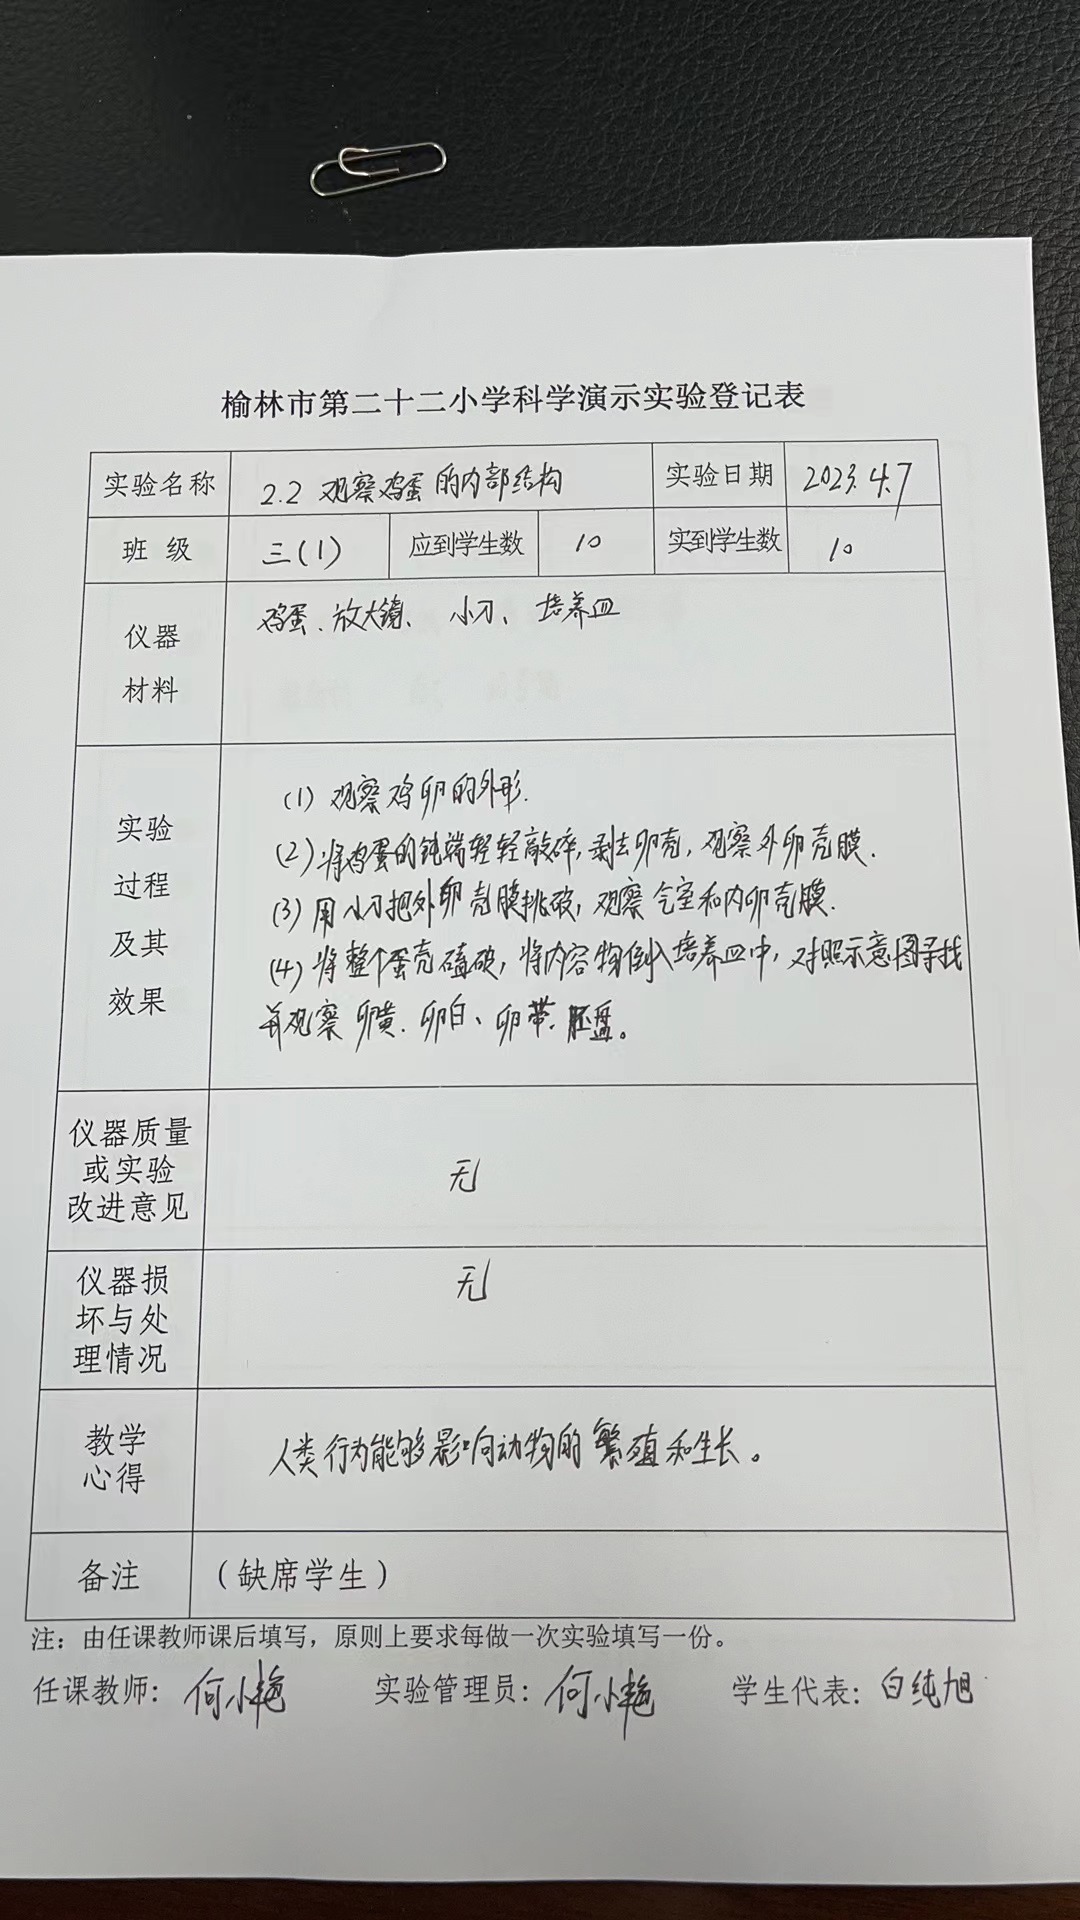 榆林市第二十二小学科学演示实验登记表
实验名称 2.2 观察鸡蛋的内部结构 实验日期 2023.4.7
班级 三(1) 应到学生数 10 实到学生数 10
仪器
材料
鸡蛋、放大镜、小刀、培养皿
实验
过程
及其
效果
(1) 观察鸡卵的外形.
(2) 将鸡蛋的钝端轻轻敲碎,剥去卵壳,观察外卵壳膜.
(3) 用小刀把外卵壳膜挑破,观察气室和内卵壳膜.
(4) 将整个蛋壳磕破,将内容物倒入培养皿中,对照示意图寻找
并观察卵黄、卵白、卵带、胚盘。
仪器质量
或实验
改进意见
无
仪器损
坏与处
理情况
无
教学
心得
人类行为能够影响动物的繁殖和生长。
备注 (缺席学生)
注：由任课教师课后填写，原则上要求每做一次实验填写一份。
任课教师：何小艳 实验管理员：何小艳 学生代表：白纯旭